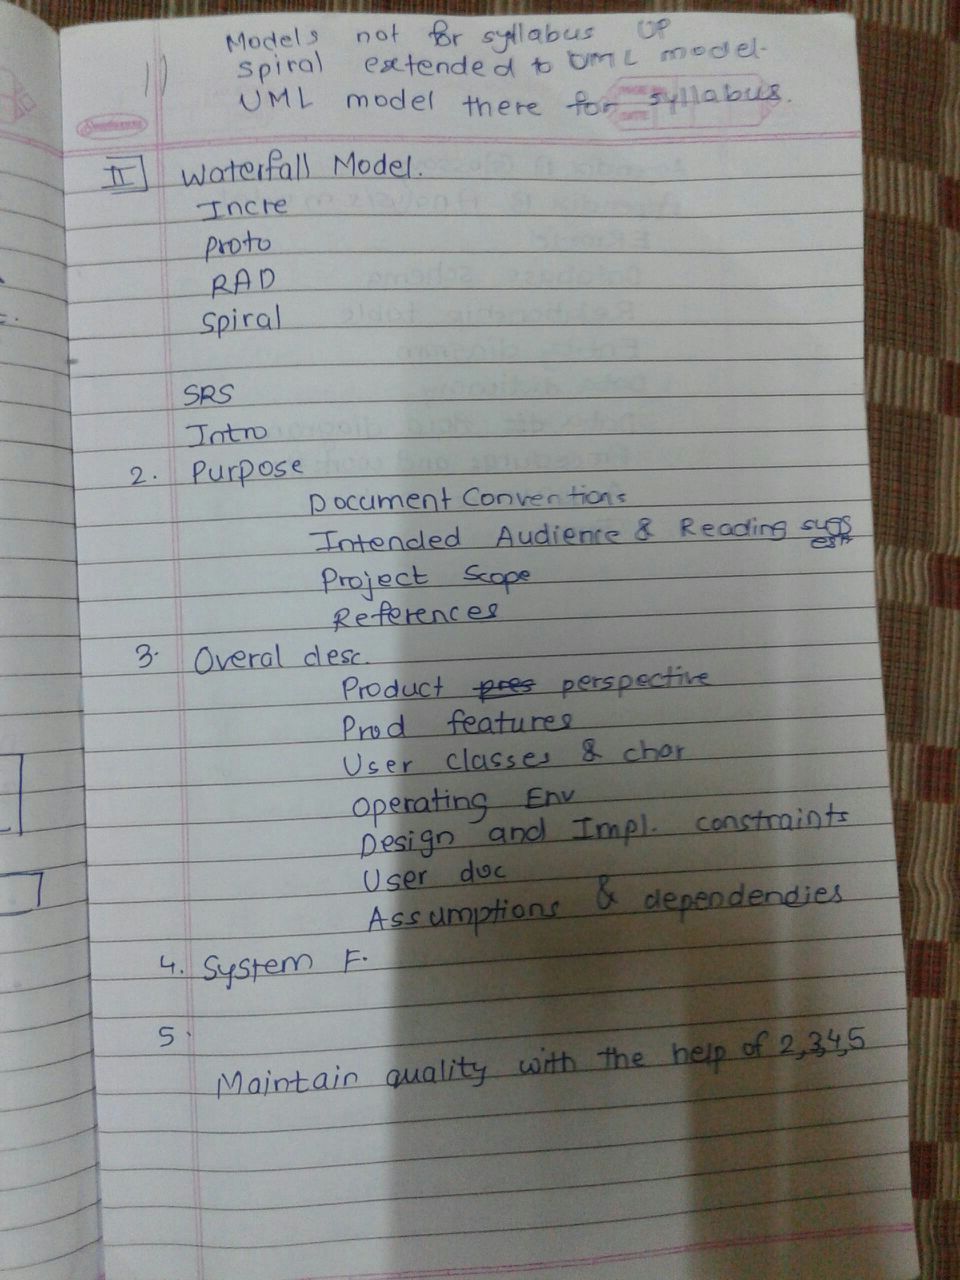 Models not for syllabus UP
Spiral extended to UML model.
UML model there for syllabus.
II Waterfall Model.
Incre
Proto
RAD
Spiral
SRS
Intro
2. Purpose
Document Conventions
Intended Audience & Reading sugg
est
Project Scope
References
3. Overal desc.
Product pres perspective
Prod features
User classes & char
Operating Env
Design and Impl. constraints
User doc
Assumptions & dependendies
4. System F.
5.
Maintain quality with the help of 2,3,4,5